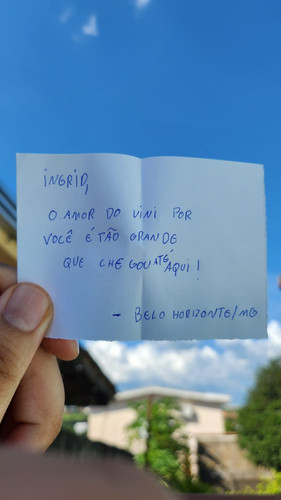 iNGRiD,
O AMOR DO ViNi POR
VOCÊ É TÃO GRANDE
QUE CHEGOU ATÉ AQUi!
- BELO HORIZONTE/MG